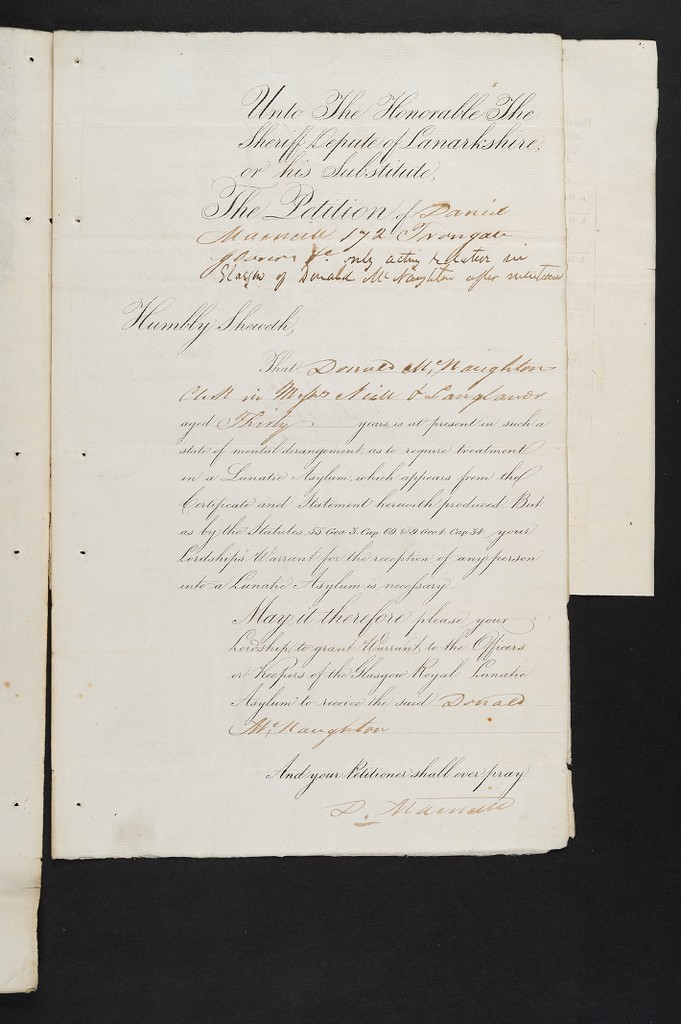 Unto The Honorable The
Sheriff Depute of Lanarkshire,
or his Substitute,
The Petition of Daniel
172 Trongate
only acting relative in
Glasgow of Donald McNaughton after mentioned
Humbly Sheweth,
That Donald McNaughton
Clerk in Messrs Neill &
aged Thirty years, is at present in such a
state of mental derangement, as to require treatment
in a Lunatic Asylum, which appears from the
Certificate and Statement herewith produced. But
as by the Statutes, 55 Geo 3. Cap. 69. & 9 Geo 4. Cap 34 your
Lordship's Warrant for the reception of any person
into a Lunatic Asylum is necessary
May it therefore please your
Lordship, to grant Warrant, to the Officers
or Keepers of the Glasgow Royal Lunatic
Asylum to receive the said Donald
McNaughton
And your Petitioner shall ever pray
D.